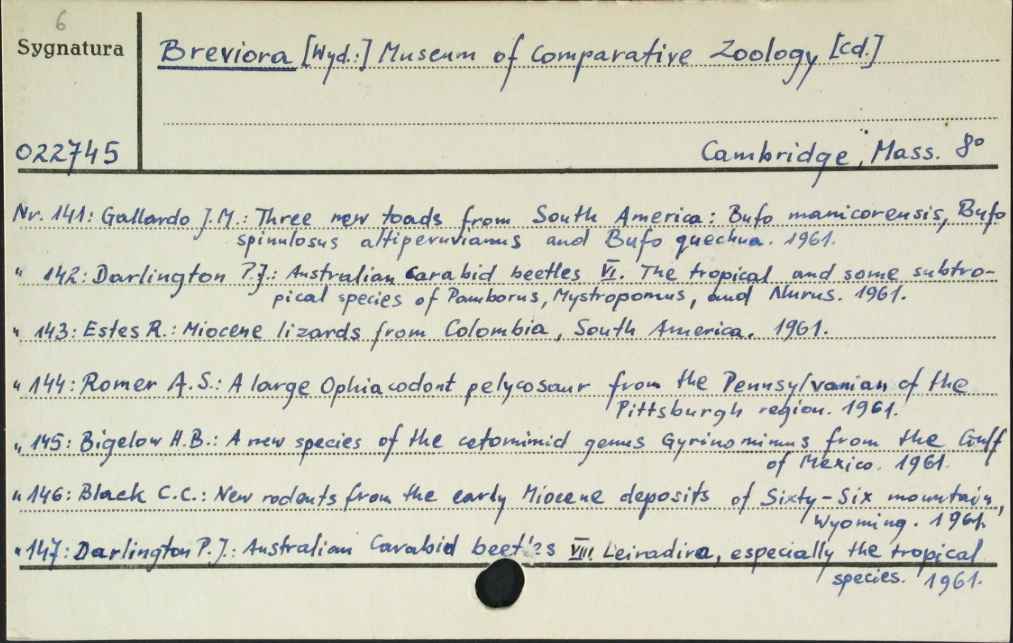 6
Sygnatura
Breviora [Wyd.:] Museum of Comparative Zoology [cd.]
022745
Cambridge, Mass. 8°
Nr. 141: Gallardo J.M.: Three new toads from South America: Bufo manicorensis, Bufo
spinulosus altiperuvianus and Bufo quechua. 1961.
" 142: Darlington P.J.: Australian carabid beetles VI. The tropical and some subtro-
pical species of Pamborus, Mystropomus, and Nurus. 1961.
" 143: Estes R.: Miocene lizards from Colombia, South America. 1961.
" 144: Romer A.S.: A large Ophiacodont pelycosaur from the Pennsylvanian of the
Pittsburgh region. 1961.
" 145: Bigelow H.B.: A new species of the cetomimid genus Gyrinomimus from the Gulf
of Mexico. 1961.
" 146: Black C.C.: New rodents from the early Miocene deposits of Sixty-Six mountain,
Wyoming. 1961.
" 147: Darlington P.J.: Australian Carabid VIII. Leiradira, especially the tropical
species. 1961.